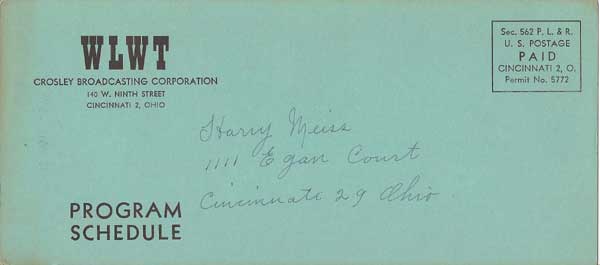 WLWT
CROSLEY BROADCASTING CORPORATION
140 W. NINTH STREET
CINCINNATI 2, OHIO
Sec. 562 P. L. & R.
U. S. POSTAGE
PAID
CINCINNATI 2, O.
Permit No. 5772
Harry Meiss
1111 Egan Court
Cincinnate 29 Ohio
PROGRAM
SCHEDULE